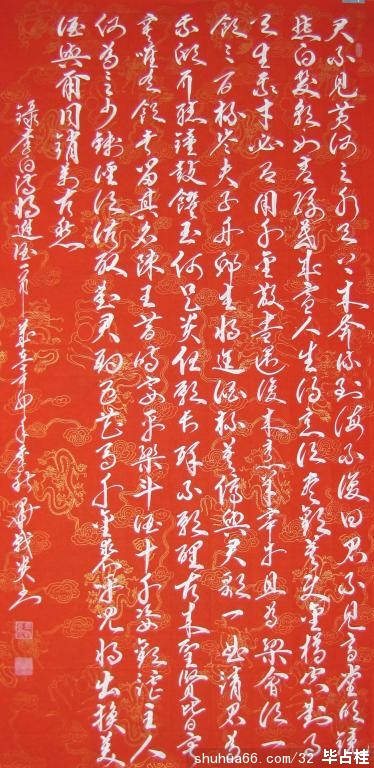 君不见黄河之水天上来奔流到海不复回君不见高堂明镜
悲白发朝如青丝暮成雪人生得意须尽欢莫使金樽空对月
天生我材必有用千金散尽还复来烹羊宰牛且为乐会须一
饮三百杯岑夫子丹邱生将进酒杯莫停与君歌一曲请君为
我倾耳听钟鼓馔玉何足贵但愿长醉不愿醒古来圣贤皆寂
寞唯有饮者留其名陈王昔时宴平乐斗酒十千恣欢谑主人
何为言少钱径须沽取对君酌五花马千金裘呼儿将出换美
酒与尔同销万古愁
录李白诗将进酒一首 岁在辛卯年季秋
shuhua66.com/32 毕占桂